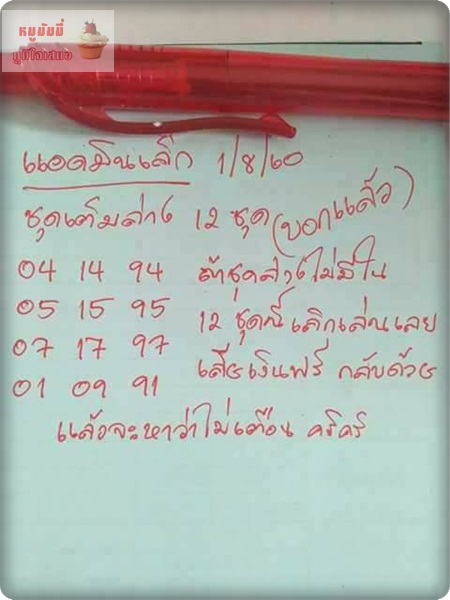 หมูมัมมี่
ภูมิใจเสมอ
แอดมินเล็ก 1/8/60
ชุดเต็มล่าง 12 ชุด (บอกแล้ว)
04 14 94 ถ้าชุดล่างไม่มีใน
05 15 95 12 ชุดนี้ เลิกเล่นเลย
07 17 97 เสียเงินฟรี กลับด้วย
01 09 91
แล้วจะหาว่าไม่เตือน คริคริ